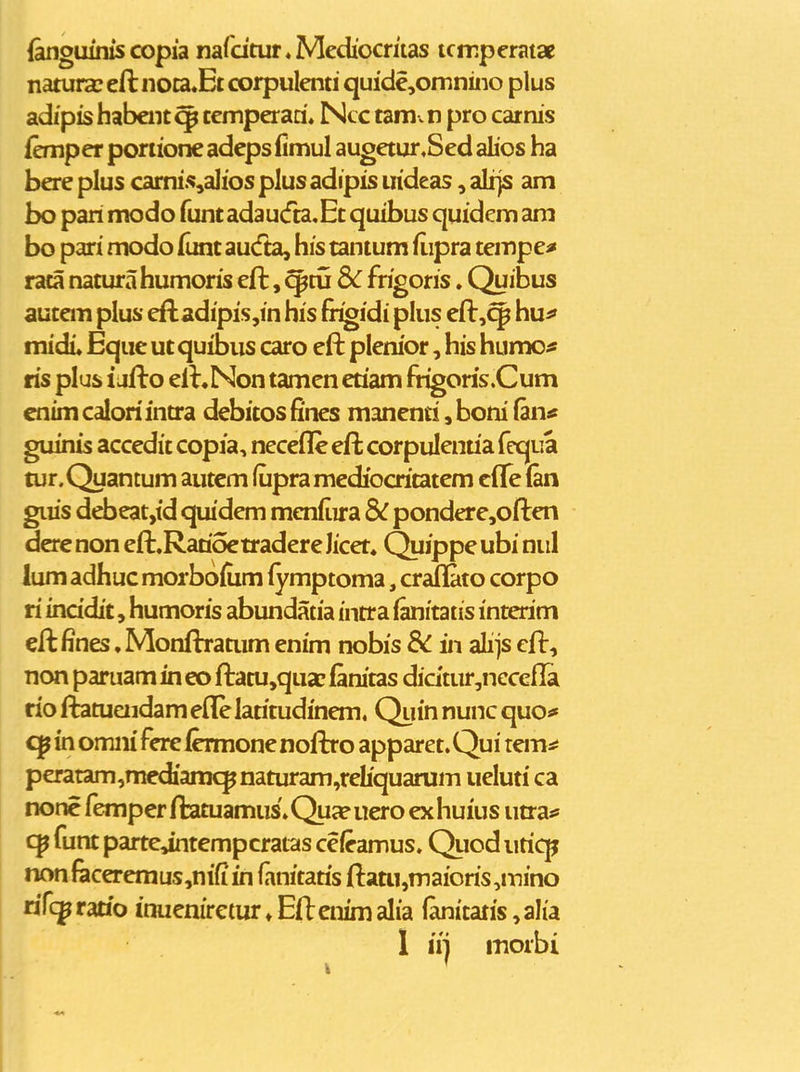 ſanguinis copia naſcitur. Mediocritas temperatæ
naturæ eſt nota. Et corpulenti quidē, omnino plus
adipis habent ꝙ temperati. Nec tamen pro carnis
ſemper portione adeps ſimul augetur. Sed alios ha
bere plus carnis, alios plus adipis uideas, alijs am
bo pari modo ſunt adaucta. Et quibus quidem am
bo pari modo ſunt aucta, his tantum ſupra tempe-
ratā naturā humoris eſt, ꝙtū & frigoris. Quibus
autem plus eſt adipis, in his frigidi plus eſt, ꝙ hu-
midi. Eque ut quibus caro eſt plenior, his humo-
ris plus iuſto eſt. Non tamen etiam frigoris. Cum
enim calori intra debitos fines manenti, boni ſan-
guinis accedit copia, neceſſe eſt corpulentia ſequa
tur. Quantum autem ſupra mediocritatem eſſe ſan
guis debeat, id quidem menſura & pondere, oſten
dere non eſt. Ratiōe tradere licet. Quippe ubi nul
lum adhuc morboſum ſymptoma, craſſato corpo
ri incidit, humoris abundātia intra ſanitatis interim
eſt fines. Monſtratum enim nobis & in alijs eſt,
non paruam in eo ſtatu, quæ ſanitas dicitur, neceſſa
rio ſtatuendam eſſe latitudinem. Quin nunc quo-
ꝙ in omni fere ſermone noſtro apparet. Qui tem-
peratam, mediamꝙ naturam, reliquarum ueluti ca
nonē ſemper ſtatuamus. Quæ uero ex huius utra-
ꝙ ſunt parte, intemperatas cēſeamus. Quod utiꝙ
non faceremus, niſi in ſanitatis ſtatu, maioris, mino
riſꝙ ratio inueniretur. Eſt enim alia ſanitatis, alia
l iij morbi